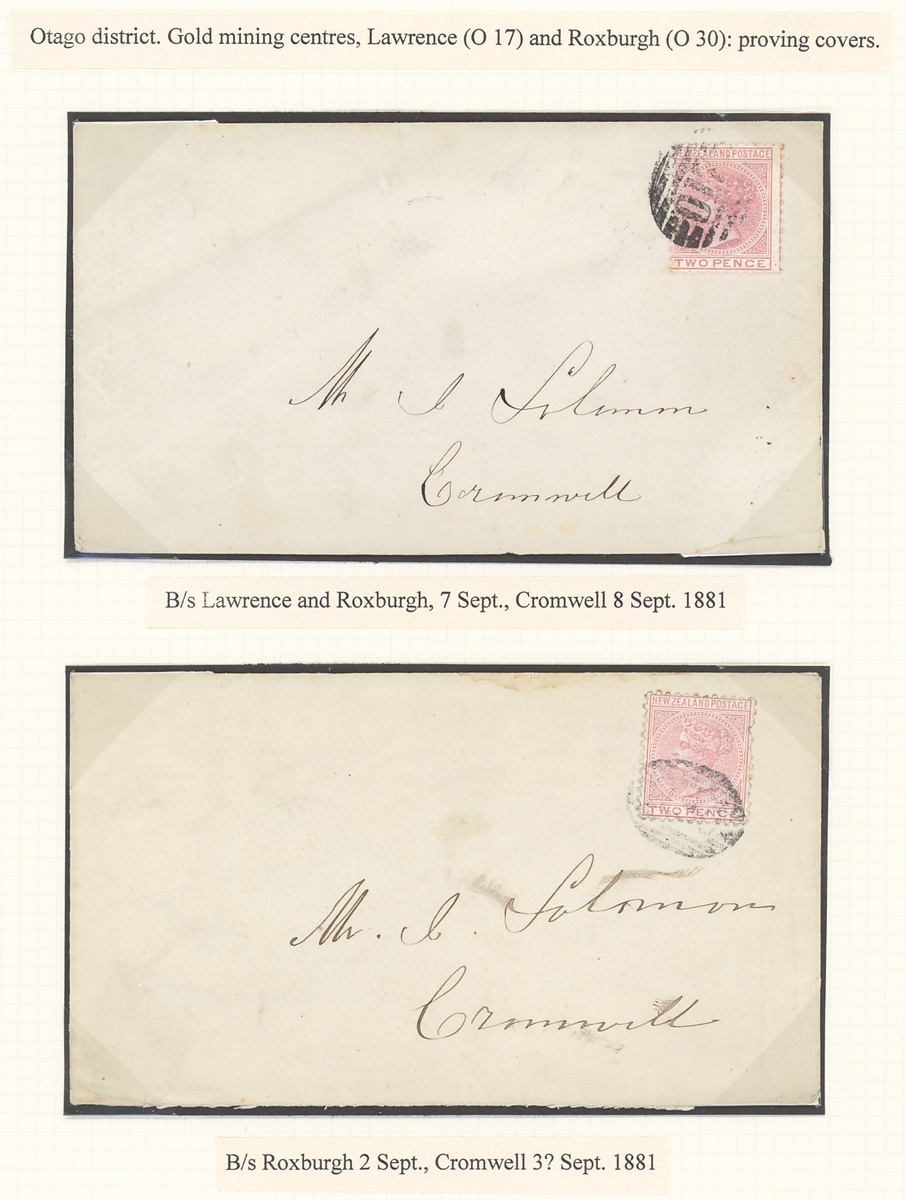 Otago district. Gold mining centres, Lawrence (O 17) and Roxburgh (O 30): proving covers.
NEW ZEALAND POSTAGE
TWO PENCE
Mr I Solomon
Cromwell
B/s Lawrence and Roxburgh, 7 Sept., Cromwell 8 Sept. 1881
NEW ZEALAND POSTAGE
TWO PENCE
Mr. I. Solomon
Cromwell
B/s Roxburgh 2 Sept., Cromwell 3? Sept. 1881